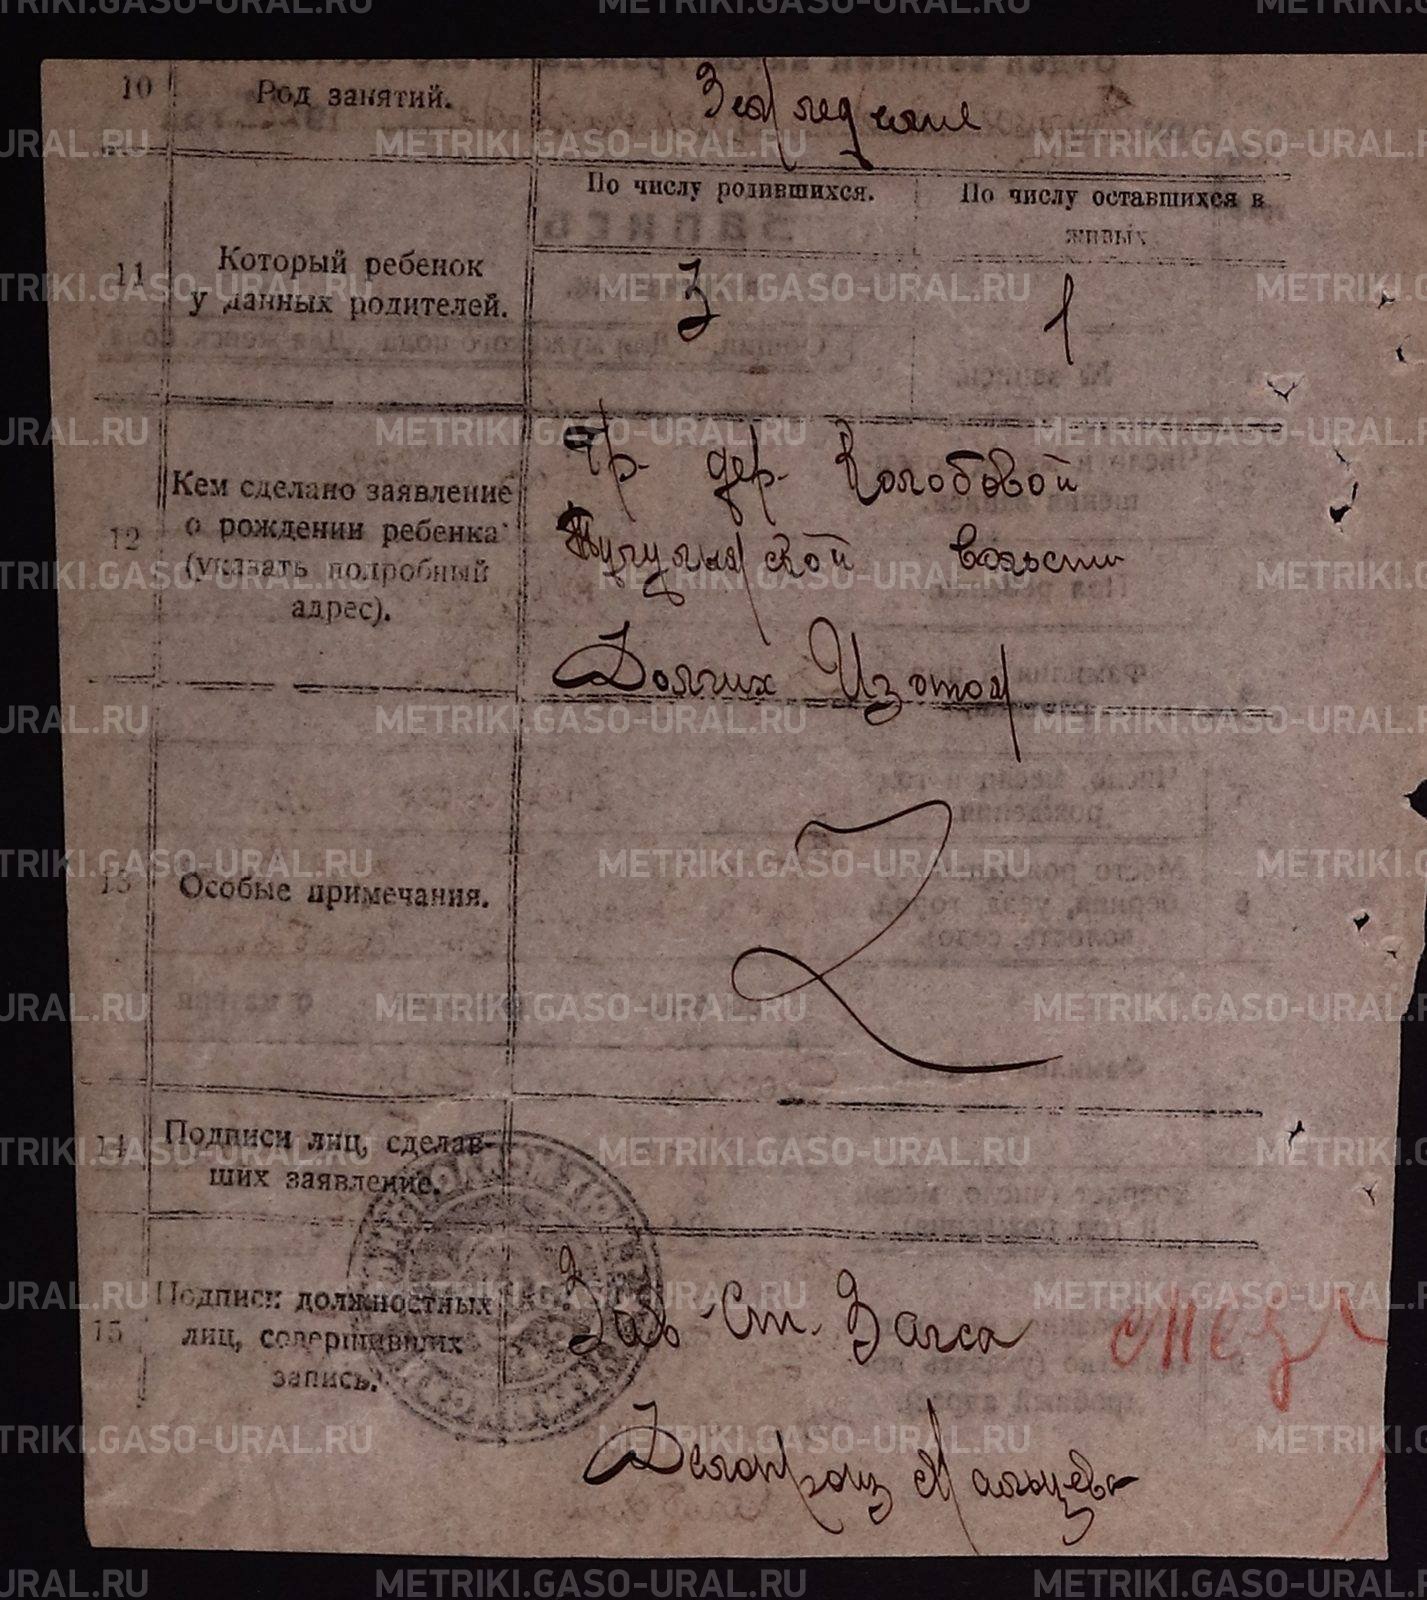 10 Род занятий. Земледелие
По числу родившихся. По числу оставшихся в живых
11 Который ребенок у данных родителей. 3 1
12 Кем сделано заявление о рождении ребенка (указать подробный адрес).
Гр. дер. Колобовой
волости
Долгих Изотом
13 Особые примечания.
14 Подписи лиц, сделавших заявление.
15 Подписи должностных лиц, совершивших запись.
Зав. Ст. Загса
Делопроиз Мальцева
METRIKI.GASO-URAL.RU